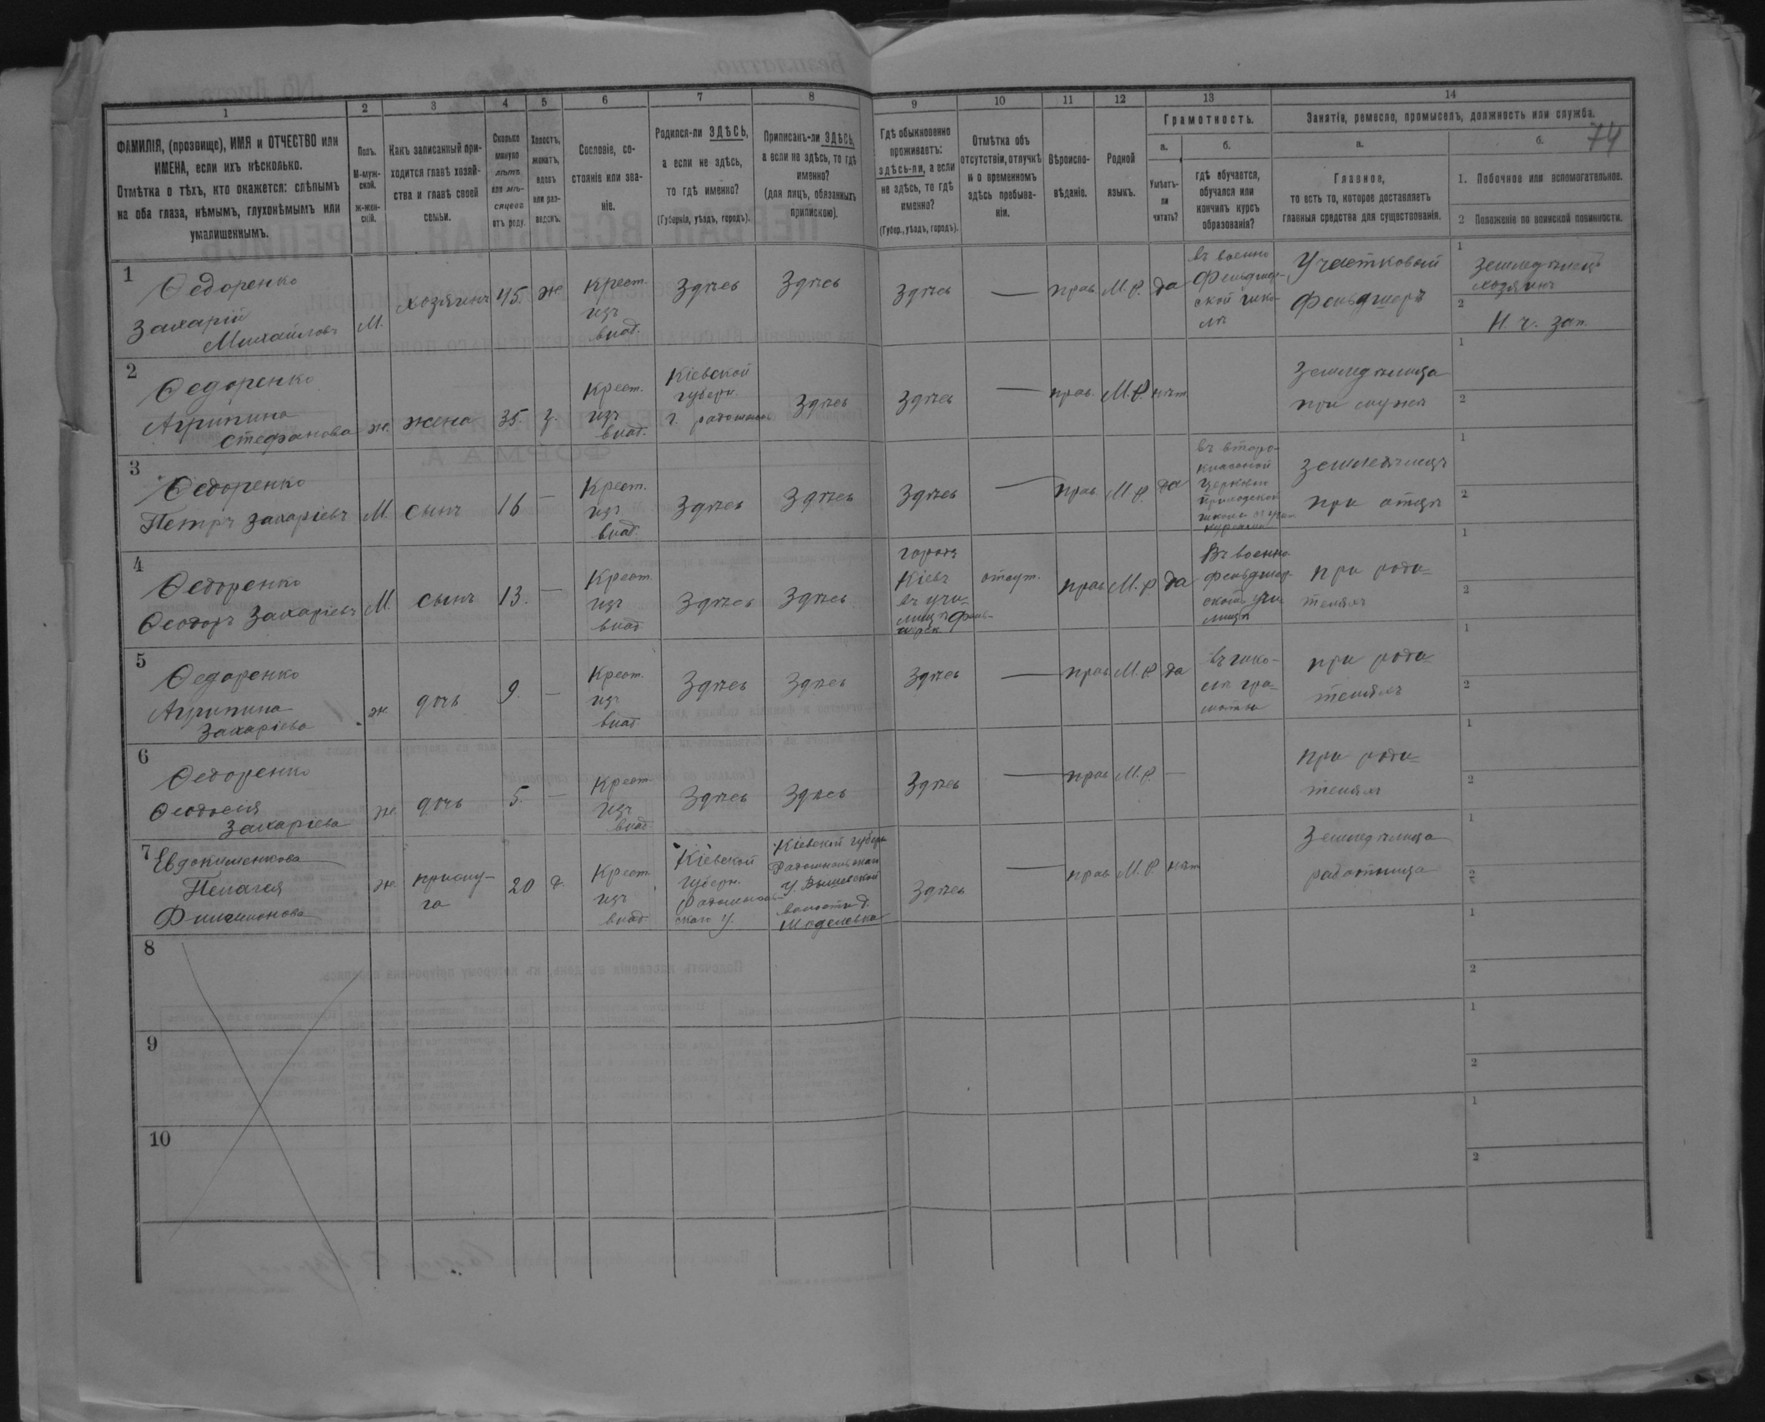 1 2 3 4 5 6 7 8 9 10 11 12 13 14
ФАМИЛІЯ, (прозвище), ИМЯ и ОТЧЕСТВО или
ИМЕНА, если ихъ нѣсколько.
Отмѣтка о тѣхъ, кто окажется: слѣпымъ
на оба глаза, нѣмымъ, глухонѣмымъ или
умалишеннымъ.
Полъ.
М-муж-
ской.
Ж-жен-
скій.
Какъ записанный при-
ходится главѣ хозяй-
ства и главѣ своей
семьи.
Сколько
минуло
лѣтъ
или мѣ-
сяцевъ
отъ роду.
Холостъ,
женатъ,
вдовъ
или раз-
веденъ.
Сословіе, со-
стояніе или зва-
ніе.
Родился-ли ЗДѢСЬ,
а если не здѣсь,
то гдѣ именно?
(Губернія, уѣздъ, городъ).
Приписанъ-ли ЗДѢСЬ,
а если не здѣсь, то гдѣ
именно?
(Для лицъ, обязанныхъ
припискою).
Гдѣ обыкновенно
проживаетъ:
здѣсь-ли, а если
не здѣсь, то гдѣ
именно?
(Губер., уѣздъ, городъ).
Отмѣтка объ
отсутствіи, отлучкѣ
и о временномъ
здѣсь пребыва-
ніи.
Вѣроиспо-
вѣданіе.
Родной
языкъ.
Грамотность.
а.
Умѣетъ-
ли
читать?
б.
гдѣ обучается,
обучался или
кончилъ курсъ
образованія?
Занятія, ремесло, промыселъ, должность или служба.
74
а.
Главное,
то есть то, которое доставляетъ
главныя средства для существованія.
б.
1. Побочное или вспомогательное.
2 Положеніе по воинской повинности.
1
Ѳедоренко
Захарій
Михайловъ
М.
хозяинъ
45.
ж
Крест.
изъ
влад.
Здѣсь
Здѣсь
Здѣсь
—
прав
М.Р.
да
въ военно
Фельдшер-
ской шко-
лѣ
Участковый
Фельдшеръ
1
Земледѣлецъ
хозяинъ
2
Н. ч. зап.
2
Ѳедоренко
Агрипина
Стефанова
ж.
жена
35.
з.
Крест.
изъ
влад.
Кіевской
губерн.
Здѣсь
Здѣсь
—
прав.
М.Р
нѣт
Земледѣлица
при мужѣ
1
2
3
Ѳедоренко
Петръ Захаріевъ
М.
сынъ
16
—
Крест.
изъ
влад
Здѣсь
Здѣсь
Здѣсь
—
прав
М.Р.
да
въ второ-
классной
церковно
приходской
Земледѣлецъ
при отцѣ
1
2
4
Ѳедоренко
Ѳеодоръ Захаріевъ
М
сынъ
13.
—
Крест.
изъ
влад
Здѣсь
Здѣсь
города
Кіевъ
въ учи-
лищѣ
отсут.
прав
М.Р
да
Въ военно
фельдшер-
ской учи
лищѣ
при роди-
теляхъ
1
2
5
Ѳедоренко
Агрипина
Захаріева
ж.
дочь
9.
—
Крест.
изъ
влад
Здѣсь
Здѣсь
Здѣсь
—
прав
М.Р
да
въ шко-
лѣ гра-
моты
при роди
теляхъ
1
2
6
Ѳедоренко
Ѳеодосія
Захаріева
ж.
дочь
5.
—
Крест.
изъ
влад
Здѣсь
Здѣсь
Здѣсь
—
прав
М.Р.
—
при роди-
теляхъ
1
2
7
Евдокименкова
Пелагея
Филимонова
ж.
прислу-
га
20
д.
Крест
изъ
влад
Кіевской
губерн.
Радомысль-
скаго у.
Кіевской губерн
Радомысльскаго
у
волости д.
Здѣсь
—
прав
М.Р
нѣт
Земледѣлица
работница
1
2
8
1
2
9
1
2
10
1
2